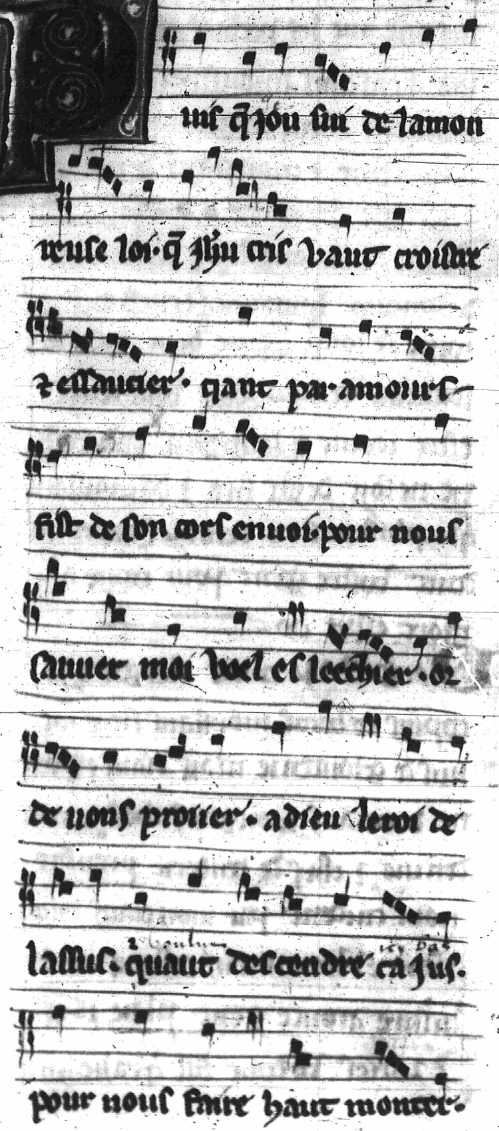 Puis q̃ jou sui de lamou
reuse loi · q̃ Jh̃u cris vaut croistre
⁊ essaucier · qant par amours
fist de son cors envoi · pour nous
sauver moi voel esleechier · or
de vons prouer · a dieu le roi de
lassus · quant descendre ca jus ·
pour nous faire haut monter ·